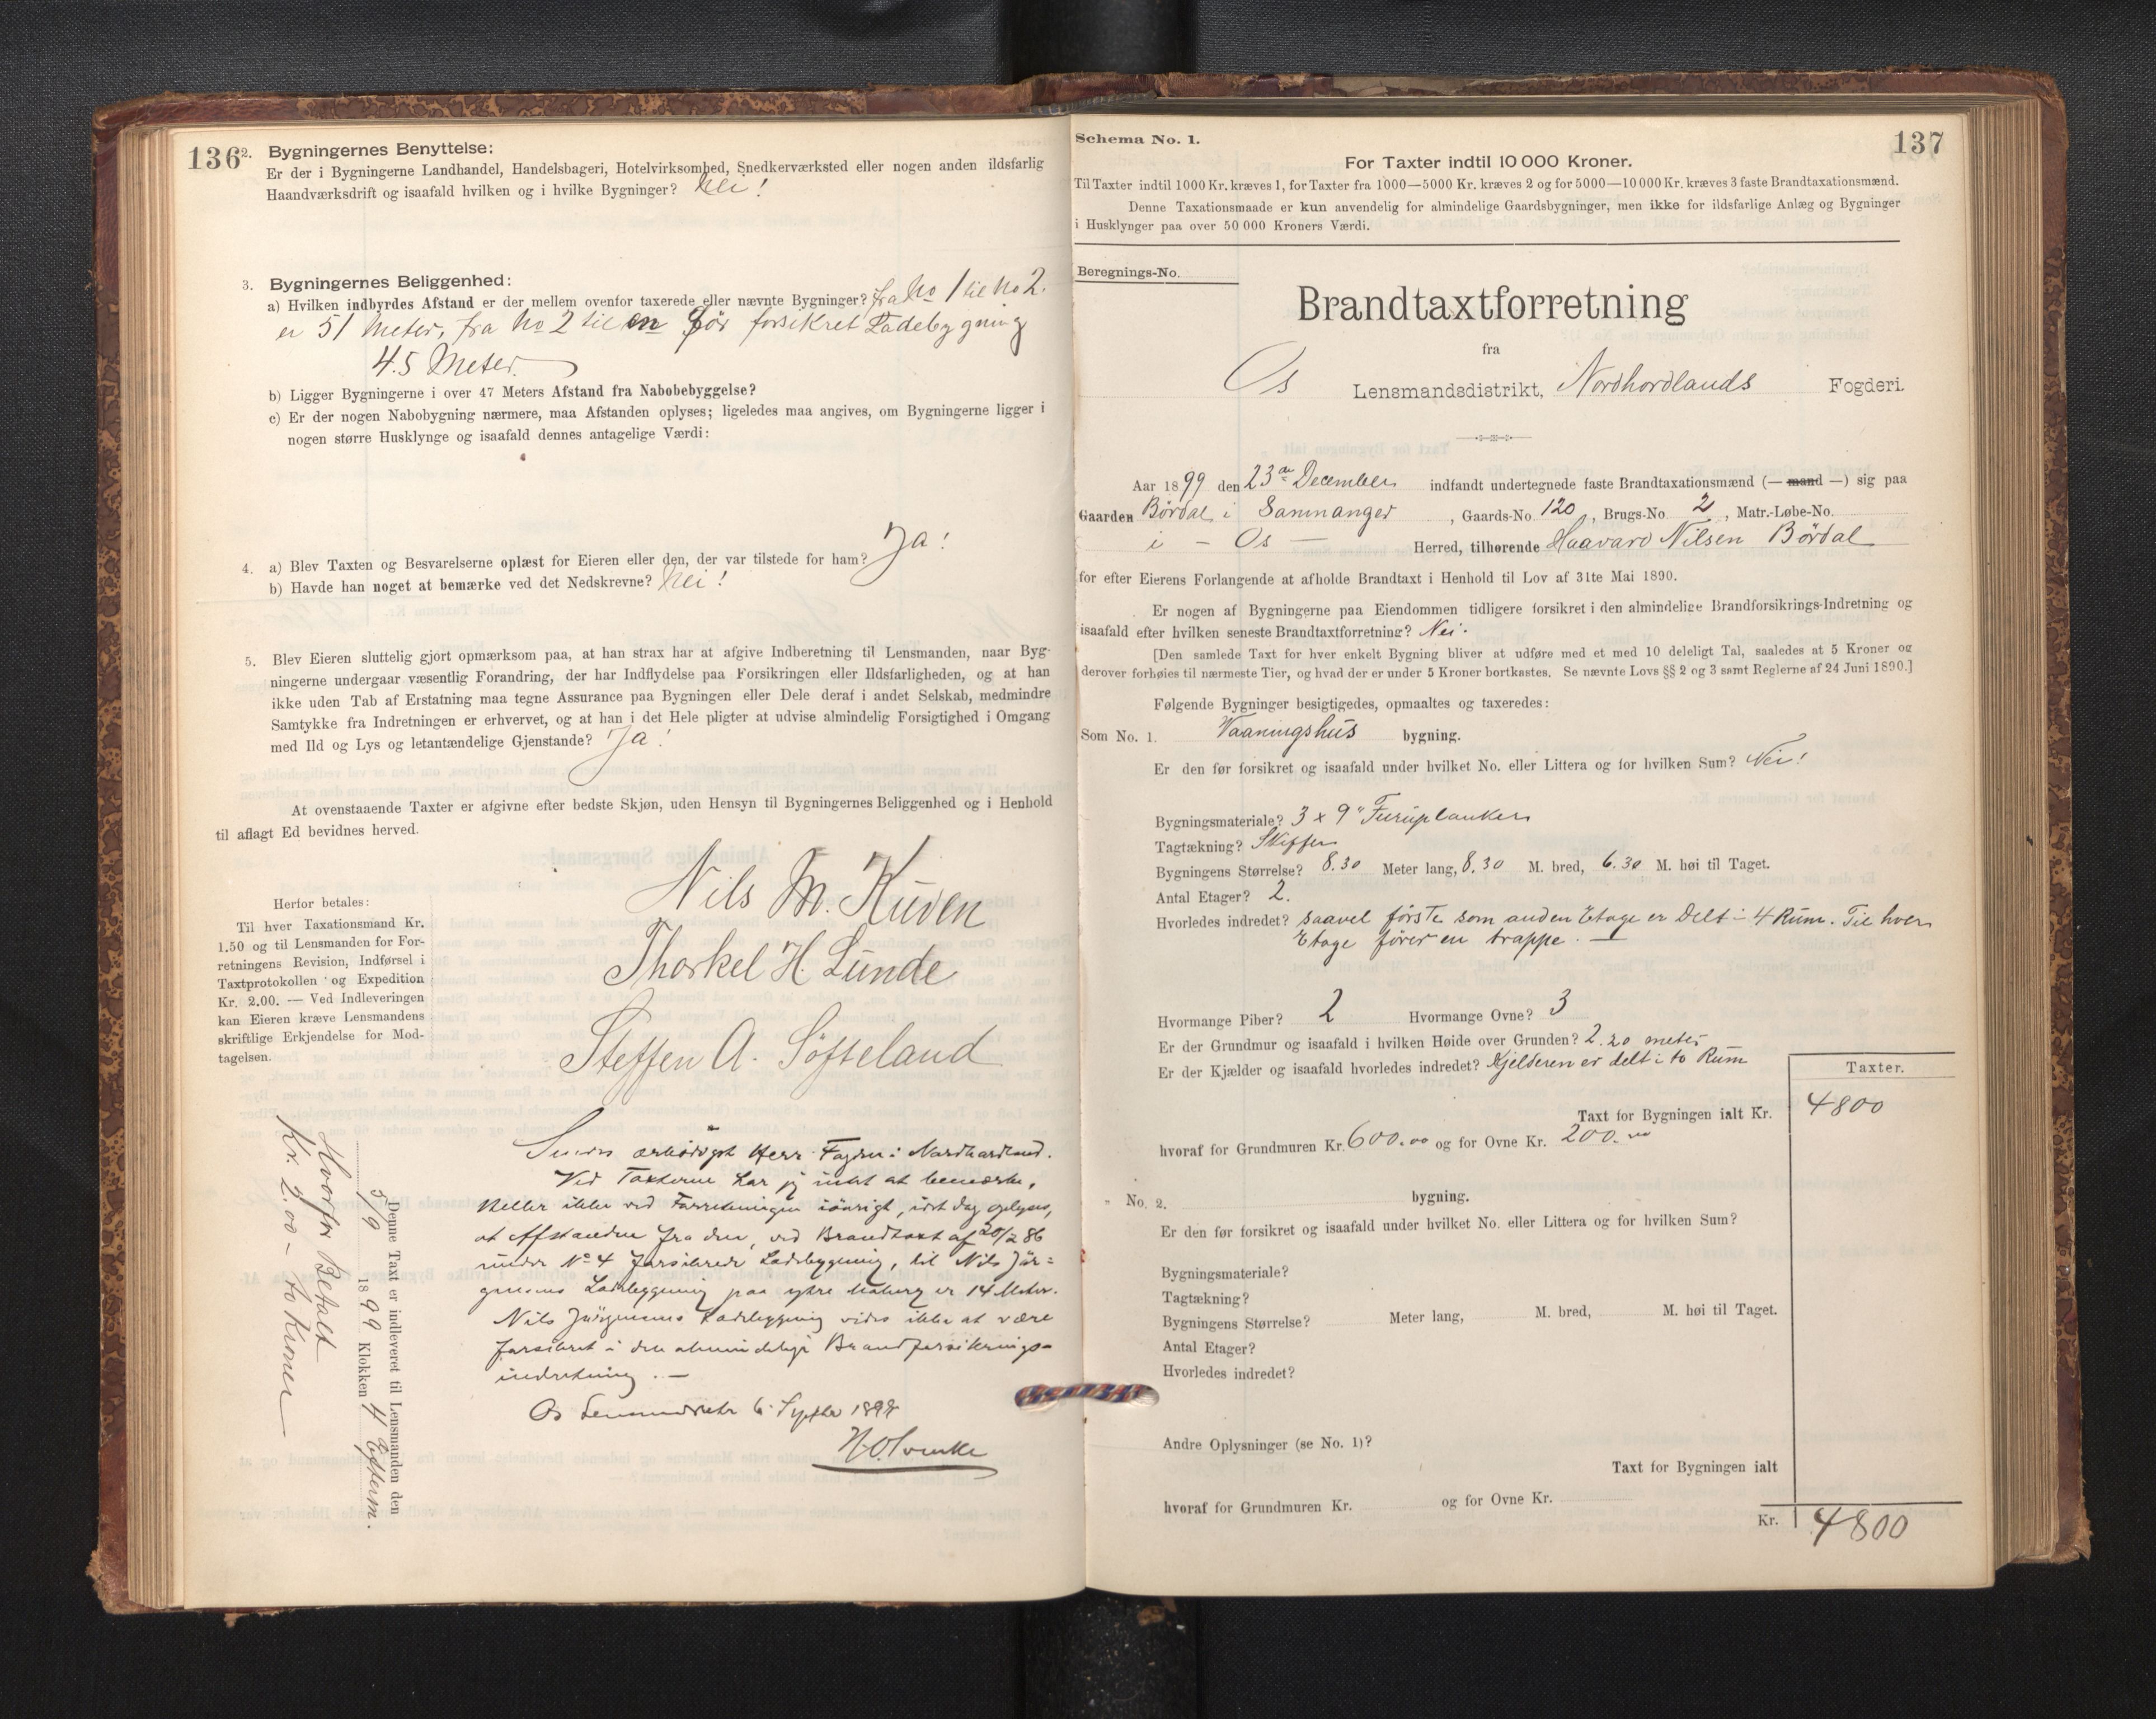 136
2. Bygningernes Benyttelse:
Er der i Bygningerne Landhandel, Handelsbageri, Hotelvirksomhed, Snedkerværksted eller nogen anden ildsfarlig
Haandværksdrift og isaafald hvilken og i hvilke Bygninger? Nei!
3. Bygningernes Beliggenhed:
a) Hvilken indbyrdes Afstand er der mellem ovenfor taxerede eller nævnte Bygninger? fra No 1 til No 2.
er 51 Meter, fra No 2 til en før forsikret Ladebygning
4.5 Meter.
b) Ligger Bygningerne i over 47 Meters Afstand fra Nabobebyggelse?
c) Er der nogen Nabobygning nærmere, maa Afstanden oplyses; ligeledes maa angives, om Bygningerne ligger i
nogen større Husklynge og isaafald dennes antagelige Værdi:
4. a) Blev Taxten og Besvarelserne oplæst for Eieren eller den, der var tilstede for ham? Ja!
b) Havde han noget at bemærke ved det Nedskrevne? Nei!
5. Blev Eieren sluttelig gjort opmærksom paa, at han strax har at afgive Indberetning til Lensmanden, naar Byg-
ningerne undergaar væsentlig Forandring, der har Indflydelse paa Forsikringen eller Ildsfarligheden, og at han
ikke uden Tab af Erstatning maa tegne Assurance paa Bygningen eller Dele deraf i andet Selskab, medmindre
Samtykke fra Indretningen er erhvervet, og at han i det Hele pligter at udvise almindelig Forsigtighed i Omgang
med Ild og Lys og letantændelige Gjenstande? Ja!
At ovenstaaende Taxter er afgivne efter bedste Skjøn, uden Hensyn til Bygningernes Beliggenhed og i Henhold
til aflagt Ed bevidnes herved.
Nils M. Kuven
Thorkel H. Lunde
Steffen A. Söfteland
Herfor betales:
Til hver Taxationsmand Kr.
1.50 og til Lensmanden for For-
retningens Revision, Indførsel i
Taxtprotokollen og Expedition
Kr. 2.00. — Ved Indleveringen
kan Eieren kræve Lensmandens
skriftlige Erkjendelse for Mod-
tagelsen.
Denne Taxt er indleveret til Lensmanden den
5/9 1899 Klokken 4 Efterm.
Hvorfor Betalt
Kr. 2.00 - to Kroner
Sendes ærbødigst Herr Fogden i Nordhordland.
Ved Taxterne har jeg intet at bemærke,
heller ikke ved Forretningen iøvrigt, idet dog oplyses,
at Afstanden fra den, ved Brandtaxt af 20/2 86
under No 4 forsikrede Ladebygning, til Nils Jør=
gensens Ladebygning paa ydre er 14 Meter.
Nils Jørgensens Ladebygning vides ikke at være
forsikret i den almindelige Brandforsikrings-
indretning. —
Os 6 Septbr 1899
Schema No. 1.
137
For Taxter indtil 10 000 Kroner.
Til Taxter indtil 1000 Kr. kræves 1, for Taxter fra 1000—5000 Kr. kræves 2 og for 5000—10 000 Kr. kræves 3 faste Brandtaxationsmænd.
Denne Taxationsmaade er kun anvendelig for almindelige Gaardsbygninger, men ikke for ildsfarlige Anlæg og Bygninger
i Husklynger paa over 50 000 Kroners Værdi.
Beregnings-No.
Brandtaxtforretning
fra
Os Lensmandsdistrikt, Nordhordlands Fogderi.
Aar 1899 den 23de December indfandt undertegnede faste Brandtaxationsmænd (— mand —) sig paa
Gaarden Bördal i Samnanger, Gaards-No. 120, Brugs-No. 2, Matr.-Løbe-No.
i - Os - Herred, tilhørende Haavard Nilsen Bördal
for efter Eierens Forlangende at afholde Brandtaxt i Henhold til Lov af 31te Mai 1890.
Er nogen af Bygningerne paa Eiendommen tidligere forsikret i den almindelige Brandforsikrings-Indretning og
isaafald efter hvilken seneste Brandtaxtforretning? Nei.
[Den samlede Taxt for hver enkelt Bygning bliver at udføre med et med 10 deleligt Tal, saaledes at 5 Kroner og
derover forhøies til nærmeste Tier, og hvad der er under 5 Kroner bortkastes. Se nævnte Lovs §§ 2 og 3 samt Reglerne af 24 Juni 1890.]
Følgende Bygninger besigtigedes, opmaaltes og taxeredes:
Som No. 1. Vaaningshus bygning.
Er den før forsikret og isaafald under hvilket No. eller Littera og for hvilken Sum? Nei!
Bygningsmateriale? 3 x 9" Furuplanker
Tagtækning? Skiffer
Bygningens Størrelse? 8.30 Meter lang, 8.30 M. bred, 6.30 M. høi til Taget.
Antal Etager? 2.
Hvorledes indredet? saavel første som anden Etage er Delt i 4 Rum. Til hver
Etage fører en trappe. —
Hvormange Piber? 2 Hvormange Ovne? 3
Er der Grundmur og isaafald i hvilken Høide over Grunden? 2.20 meter
Er der Kjælder og isaafald hvorledes indredet? Kjelderen er delt i to Rum
Taxter.
Taxt for Bygningen ialt Kr. 4800
hvoraf for Grundmuren Kr. 600.00 og for Ovne Kr. 200.00
" No. 2. bygning.
Er den før forsikret og isaafald under hvilket No. eller Littera og for hvilken Sum?
Bygningsmateriale?
Tagtækning?
Bygningens Størrelse? Meter lang, M. bred, M. høi til Taget.
Antal Etager?
Hvorledes indredet?
Andre Oplysninger (se No. 1)?
Taxt for Bygningen ialt
hvoraf for Grundmuren Kr. og for Ovne Kr.
Kr. 4800